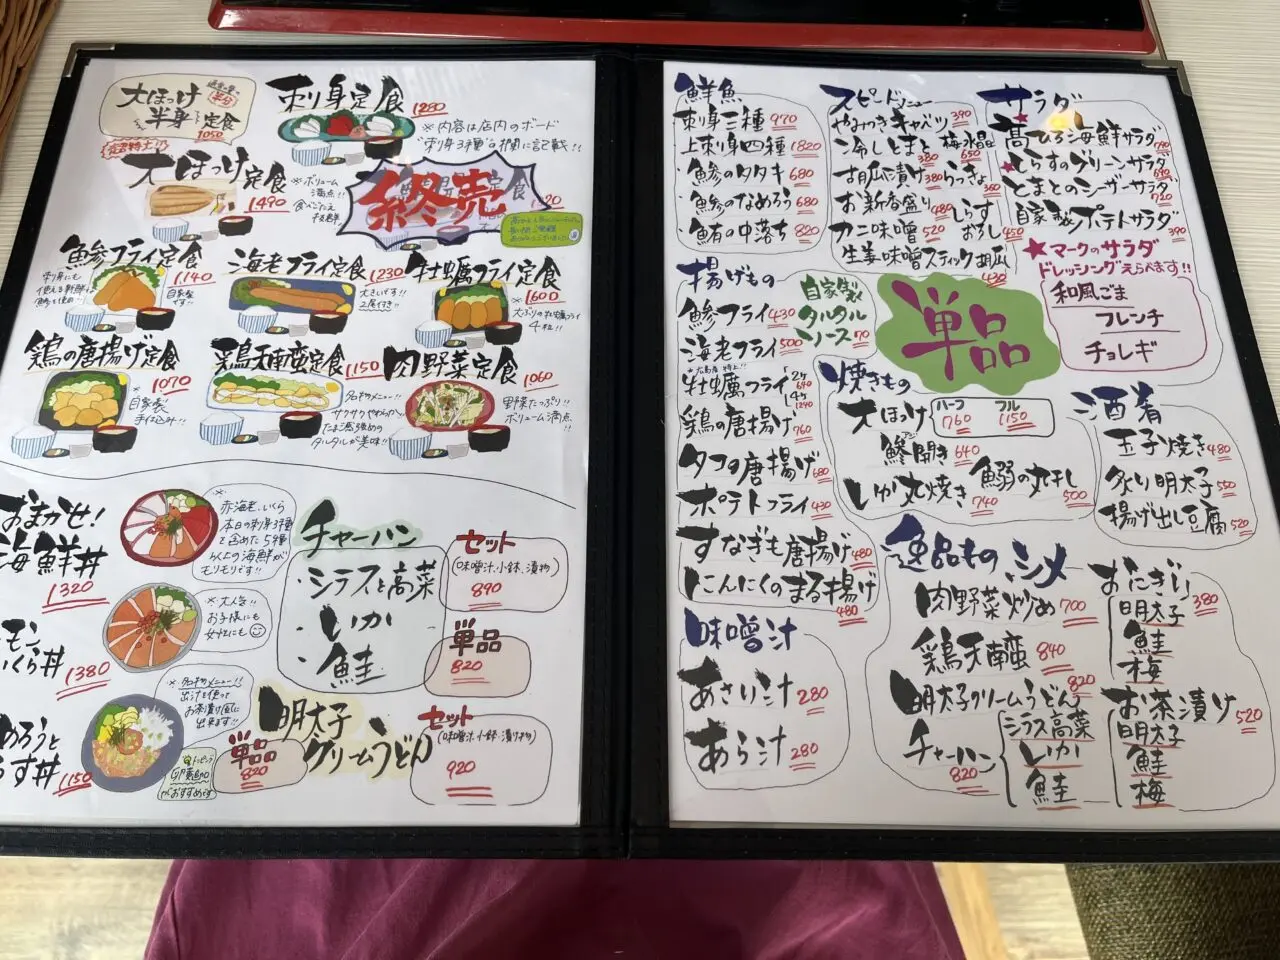 大ほっけ
半身定食
半分
1050
刺身定食 1280
※内容は店内のボード
"刺身3種"の欄に記載!!
大ほっけ定食 1490
※ボリューム
満点!!
食べごたえ
抜群
終売
鯵フライ定食 1140
刺身にも
使える新鮮な
鯵を使め!!
自家製
です!!
海老フライ定食 1230
大きいです!!
2尾付き!!
牡蠣フライ定食 1600
大ぶりの牡蠣フライ
4粒!!
鶏の唐揚げ定食 1070
※
自家製
手仕込み!!
鶏天南蛮定食 1150
名物メニュー!!
サクサクやわらかい
たまご感強めの
タルタルが美味!!
肉野菜定食 1060
野菜たっぷり!!
ボリューム満点
!!
おまかせ!
海鮮丼
1320
※
赤海老、いくら
本日の刺身3種
を含めた5種
以上の海鮮が
モリモリです!!
モン
いくら丼
1380
※大人気!!
お子様にも
女性にも
めろうと
らす丼
1150
※名物メニュー!!
出汁を使って
お茶漬け風に
出来ます!!
チャーハン
・シラスと高菜
・いか
・鮭
セット
(味噌汁、小鉢、漬物)
890
単品
820
明太子
クリームうどん
単品
820
セット
(味噌汁、小鉢、漬け物)
920
鮮魚
刺身三種 970
上刺身四種 1820
鯵のタタキ 680
鯵のなめろう 680
鮪の中落ち 820
揚げもの
鯵フライ 430
海老フライ 500
牡蠣フライ 2ケ 640
4ケ 1240
鶏の唐揚げ 760
タコの唐揚げ 680
ポテトフライ 430
すなぎも唐揚げ 480
にんにくのまる揚げ 480
自家製
タルタル
ソース 70
味噌汁
あさり汁 280
あら汁 280
スピードメニュー
やみつきキャベツ 390
冷しとまと 380
梅水晶 650
胡瓜一本漬け 380
らっきょ 360
お新香盛り 480
しらす
おろし 450
カニ味噌 520
生姜味噌スティック胡瓜 430
サラダ
★高ひろ海鮮サラダ 790
★しらすのグリーンサラダ 690
とまとのシーザーサラダ 720
自家製ポテトサラダ 390
★マークのサラダ
ドレッシングえらべます!!
和風ごま
フレンチ
チョレギ
単品
焼きもの
大ほっけ
ハーフ 760
フル 1150
鯵開き 640
いか丸焼き 740
鰯の丸干し 500
酒肴
玉子焼き 480
炙り明太子 550
揚げ出し豆腐 520
逸品もの シメ
肉野菜炒め 700
鶏天南蛮 840
明太子クリームうどん 820
チャーハン 820
シラス高菜
いか
鮭
おにぎり 380
明太子
鮭
梅
お茶漬け 520
明太子
鮭
梅